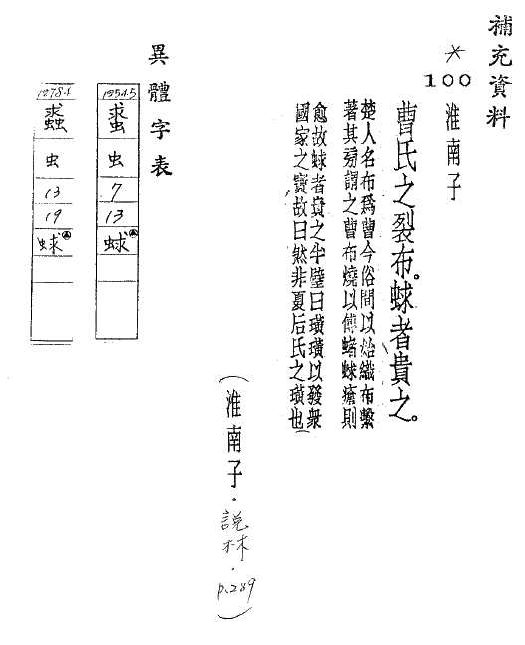 補充資料
*
100
淮南子
曹氏之裂布。蛷者貴之。
楚人名布為曹今俗間以始織布繫
著其旁謂之曹布燒以傅蝫蛷瘡則
愈故蛷者貴之半璧曰璜璜以發衆
國家之寶故曰然非夏后氏之璜也
(淮南子·說林·p.289)
異體字表
12545
蝵
虫
7
13
蛷
12784
蟲
虫
13
19
蛷